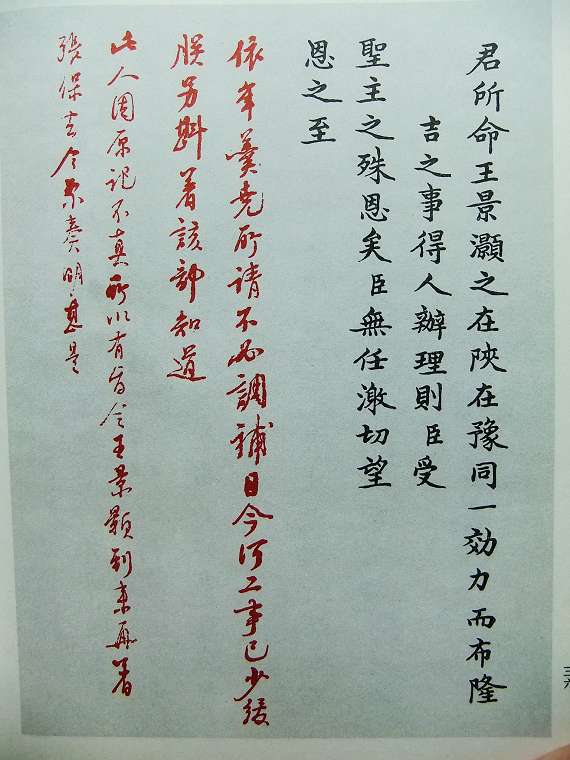 君所命王景灝之在陝在豫同一効力而布隆
吉之事得人辦理則臣受
聖主之殊恩矣臣無任激切望
恩之至
依年羹堯所請不必調補目今河工事已少緩
朕另斟着該部知道
此人因原記不真所以有旨令王景顥到來再着
張保去今系奏明甚是
三六